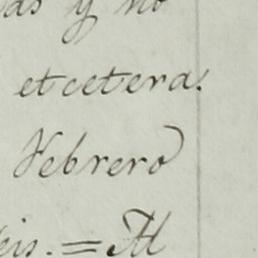 y no
etcetera.
Febrero
eis. = Al